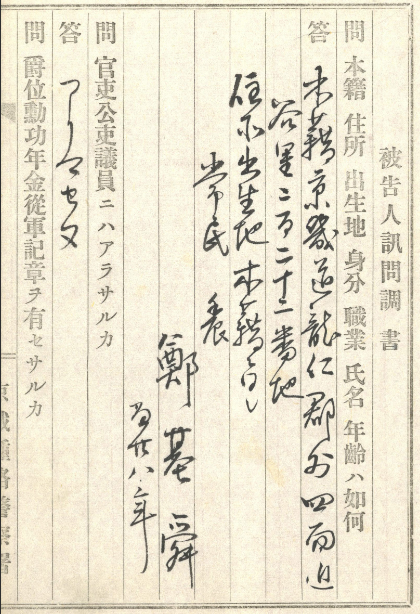 被告人訊問調書
問 本籍 住所 出生地 身分 職業 氏名 年齢ハ如何
答
本籍京畿道龍仁郡外四面近
谷里二百二十二番地
住所出生地本籍
常民 農
鄭基舜
当廿八年
問 官吏公吏議員ニハアラサルカ
答 アリマセヌ
問 爵位勳功年金從軍記章ヲ有セサルカ